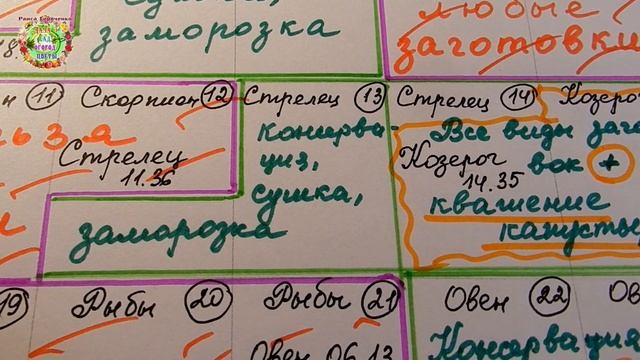 Раиса Горяченко
ДАЧА
САД
ОГОРОД
ЦВЕТЫ
заморозка
любые
заготовки
11 Скорпион 12 Стрелец 13 Стрелец 14 Козерог
льза
Стрелец
11.36
консерва-
ция,
сушка,
заморозка
Все виды заго
Козерог
14.35
вок +
квашение
капусты
19 Рыбы 20 Рыбы 21 Овен 22 Ов
Овен 06.13
Консервация